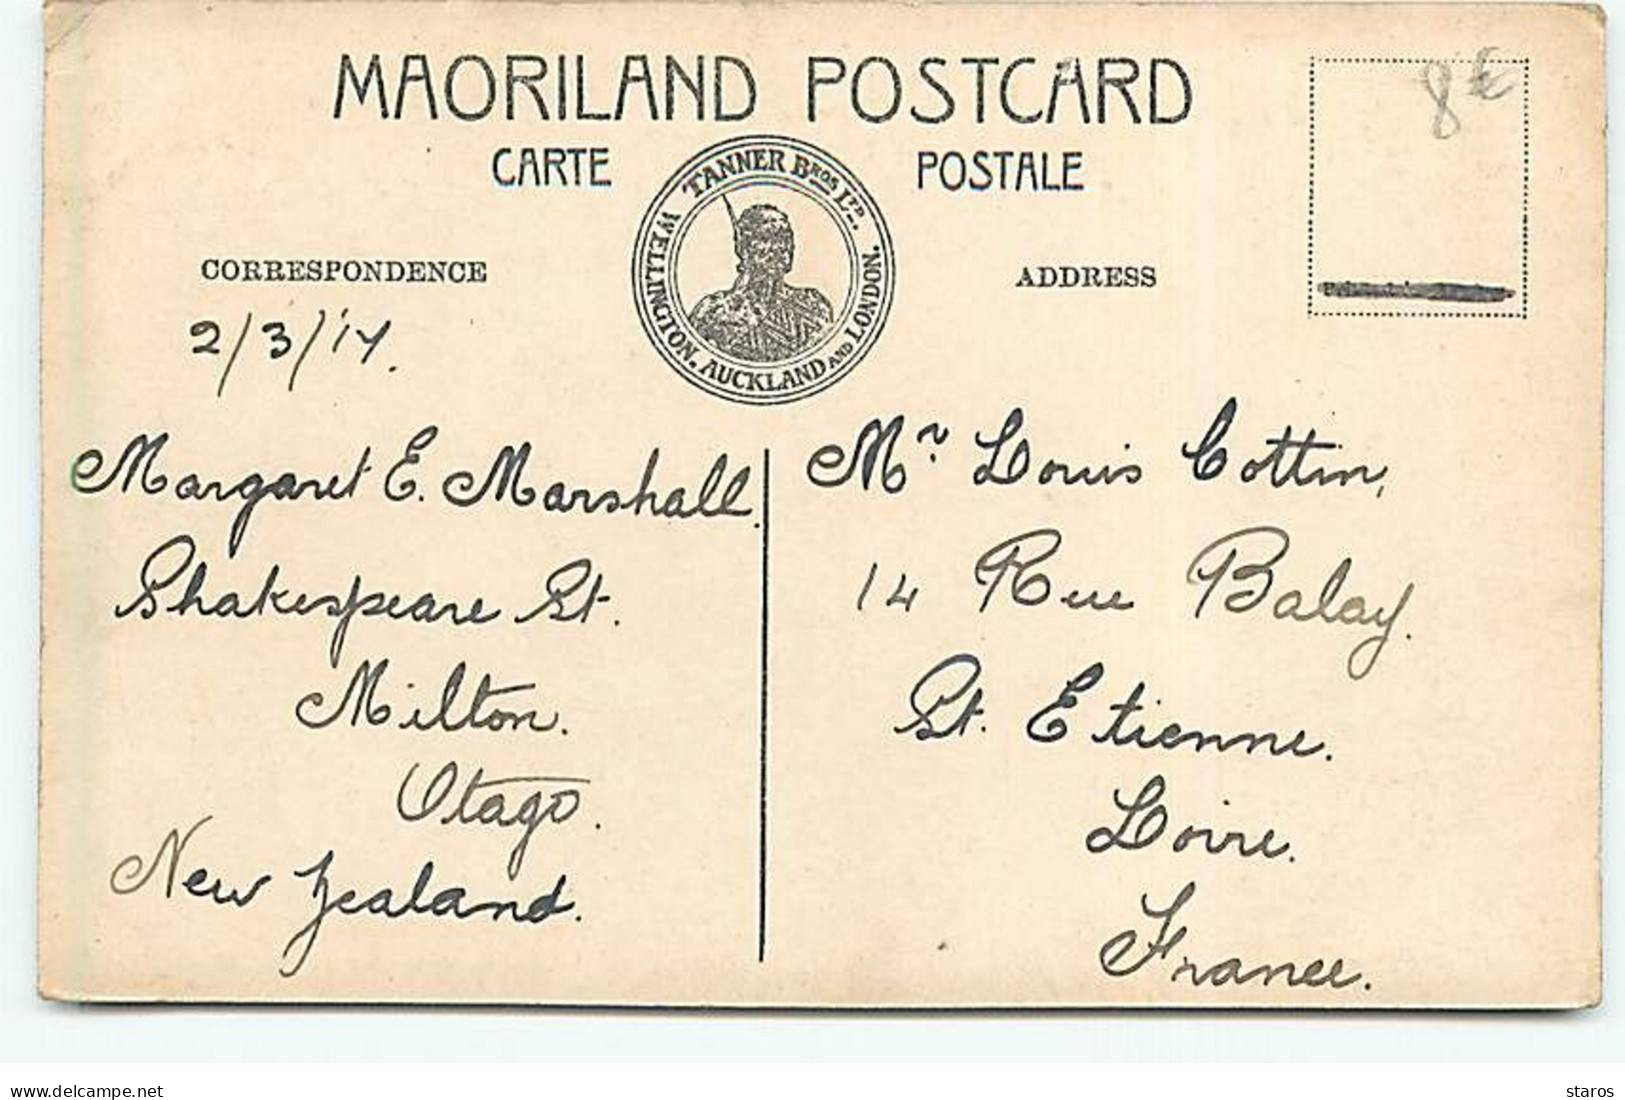 MAORILAND POSTCARD
CARTE POSTALE
TANNER BROS LTD.
WELLINGTON. AUCKLAND AND LONDON.
CORRESPONDENCE
ADDRESS
8€
2/3/14.
Margaret E. Marshall.
Shakespeare St.
Milton.
Otago.
New Zealand.
Mr. Louis Cottin,
14 Rue Balay.
St. Etienne.
Loire.
France.
www.delcampe.net
staros